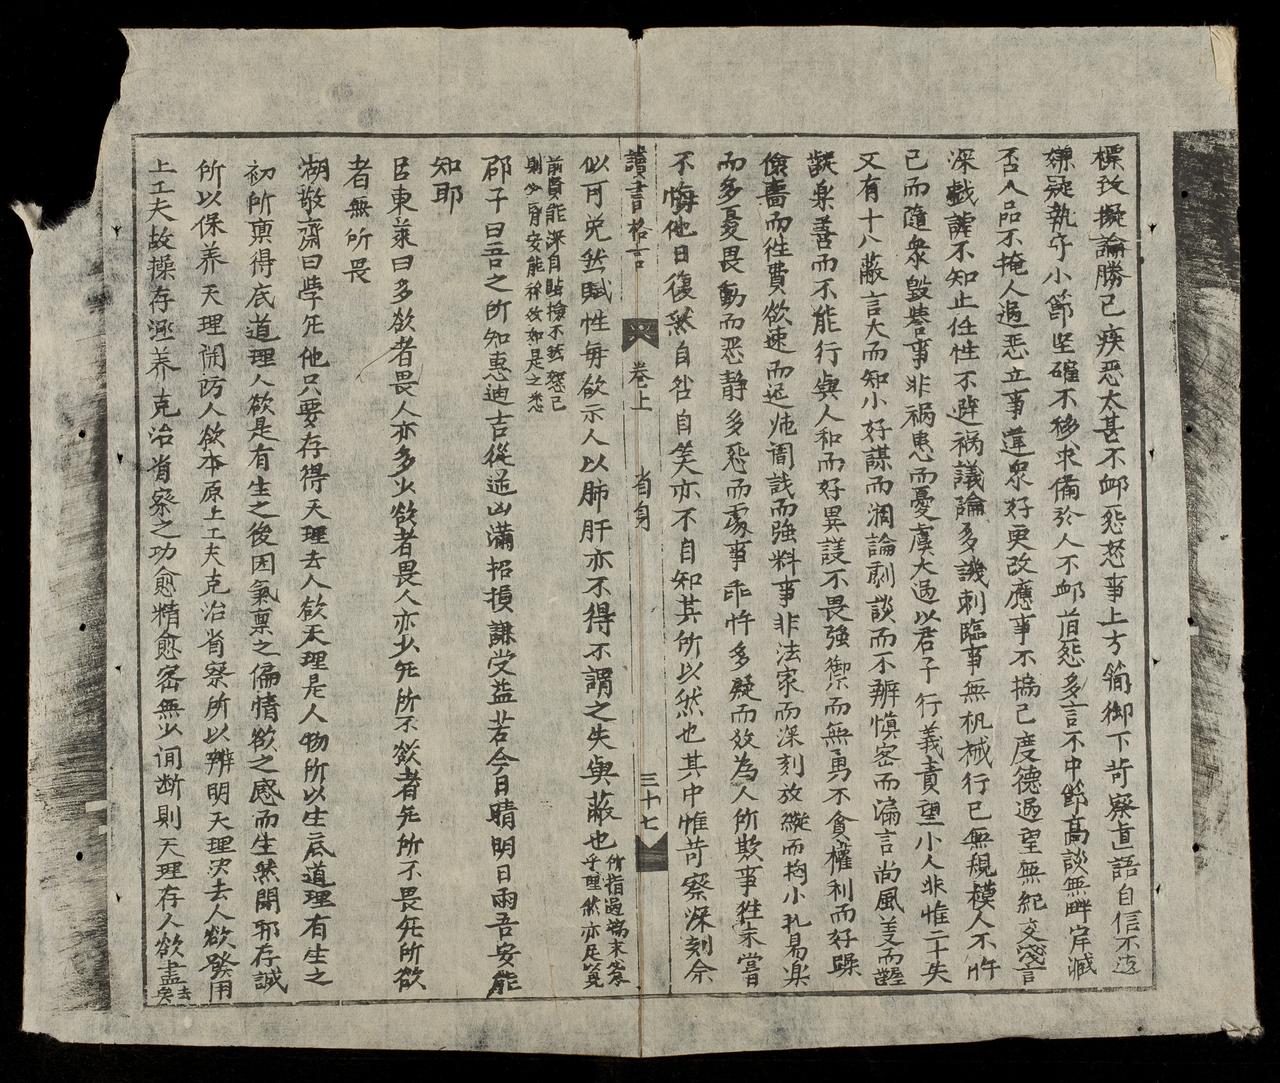 標致擬論勝己疾惡太甚不卹怨怒事上方簡御下苛察直語自信不遠
嫌疑執守小節堅確不移求備於人不卹咎怨多言不中節高談無畔岸臧
否人品不掩人過惡立事違衆好更改應事不揣己度德過望無紀交淺言
深戲謔不知止任性不避禍議論多譏刺臨事無机械行己無規模人不忤
己而隨衆毀譽事非禍患而憂虞太過以君子行義責望小人非惟二十失
又有十八蔽言大而知小好謀而濶論劇談而不辨愼密而漏言尚風義而齷
齪樂善而不能行與人和而好異議不畏強禦而無勇不貪權利而好躁
儉嗇而徃費欲速而遲鈍周誐而強料事非法家而深刻放縱而拘小礼易樂
而多憂畏動而惡静多惡而處事乖忤多疑而放為人所欺事徃未嘗
不悔他日復然自咎自笑亦不自知其所以然也其中惟苛察深刻余
讀書格言 卷上 省身 三十七
似可免然賦性毎欲示人以肺肝亦不得不謂之失與蔽也 所指過端末必當乎理然亦足覓
前賢能深自點檢不然怨己則少有安能祥攷如是之悉
邵子曰吾之所知惠迪吉從逆凶滿招損謙受益若今日晴明日雨吾安能
知耶
呂東萊曰多欲者畏人亦多少欲者畏人亦少死所不欲者死所不畏死所欲
者無所畏
湖敬齋曰學死他只要存得天理去人欲天理是人物所以生底道理有生之
初所稟得底道理人欲是有生之後因氣稟之偏情欲之感而生然閑邪存誠
所以保养天理閑防人欲本原上工夫克治省察所以辨明天理决去人欲發用
上工夫故操存涵养克治省察之功愈精愈密無少间断則天理存人欲盡去矣